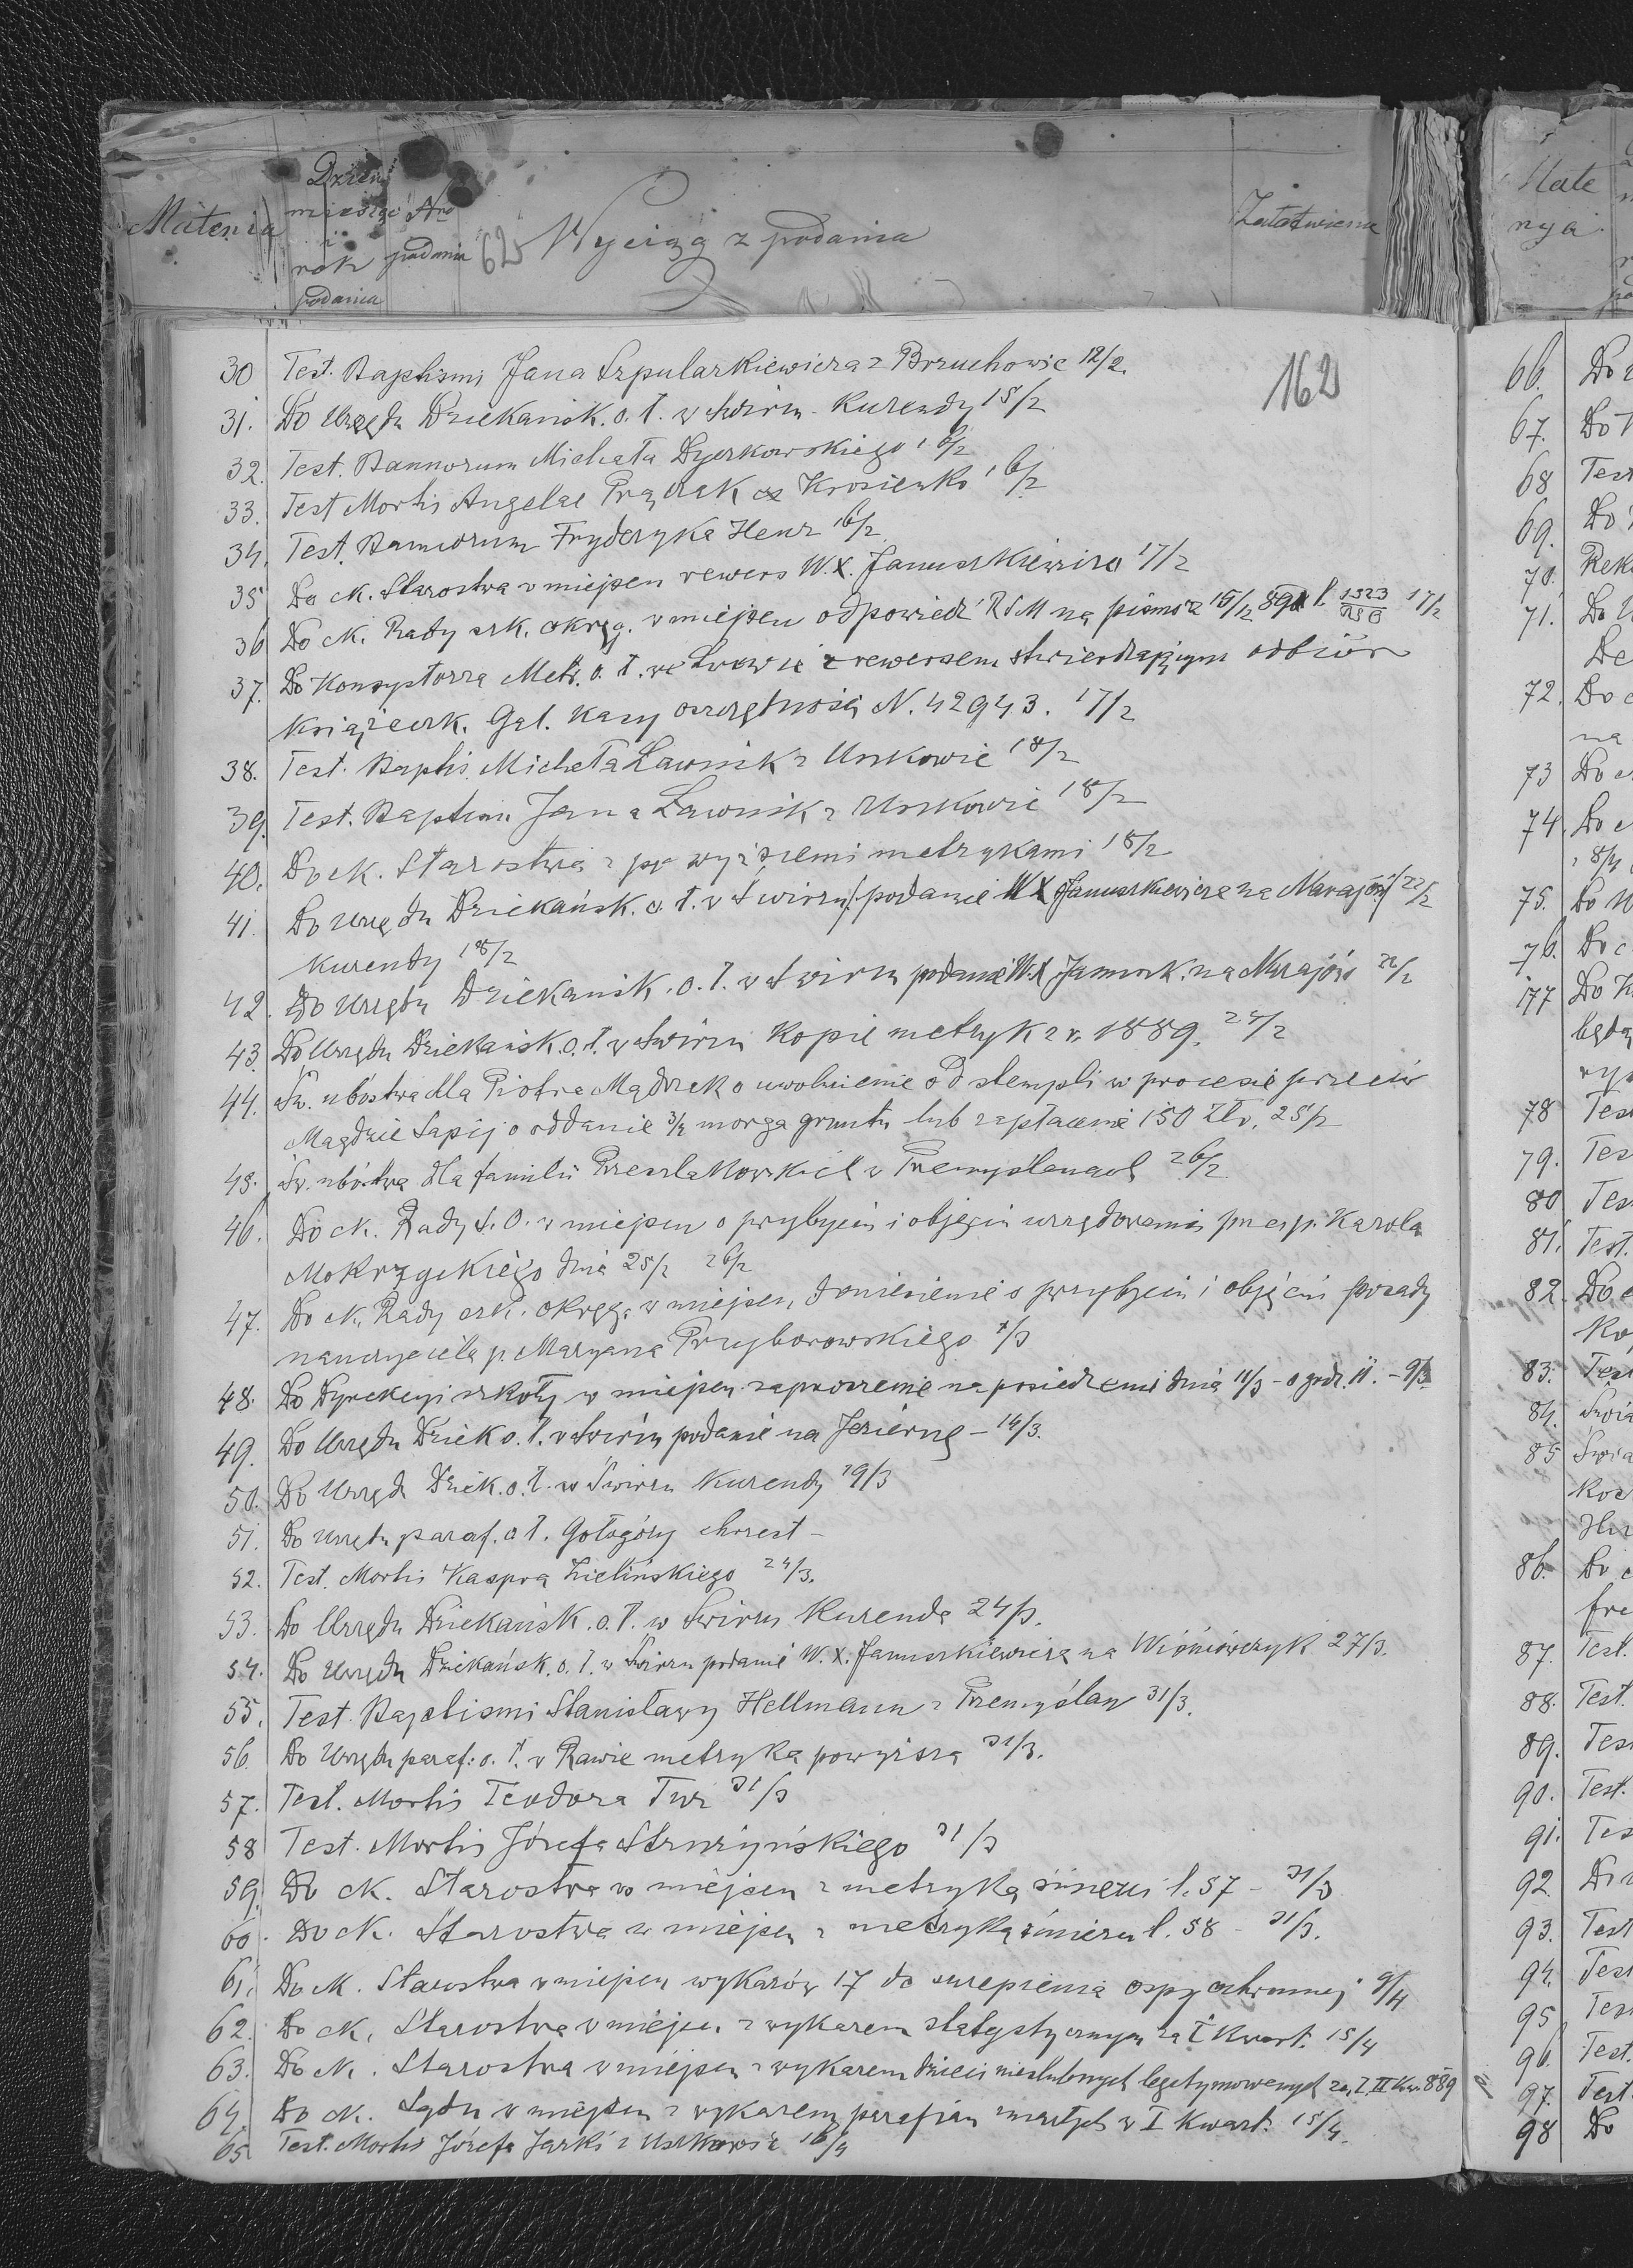 Materia
Dzień
miesiąc
i
rok
podania
Nro
podania
62
Wyciąg z podania
Załatwienia
162
30 Test. Baptismi Jana Szpularkiewicza z Brzuchowic 12/2.
31. Do Urzędu Dziekańsk. o. ł. w Świrzu Kurendy 15/2
32. Test. Bannorum Michała Dyczkowskiego 16/2
33. Test Mortis Angelae Prączak Krosienko 16/2
34. Test. Bannorum Fryderyka Henz 16/2
35 Do ck. Starostwa w miejscu rewers W. X. Januszkiewicza 17/2
36 Do ck. Rady szk. okręg. w miejscu odpowiedź RSM na pismo z 15/12 l. 1323 17/2
37. Do Konsystorza Metr. o. ł. we Lwowie z rewersem stwierdzającym odbiór
książeczk. Gal. Kasy oszczętności N. 42943. 17/2
38. Test. Baptis. Michała Ławnik z Uszkowic 18/2
39. Test. Baptism Jana Ławnik z Uszkowic 18/2
40. Do ck. Starostwa z powyższemi metrykami 18/2
41. Do Urzędu Dziekańsk. o. ł. w Świrzu podanie W X Januszkiewicza na Marajów 22/2
Kurendy 18/2
42. Do Urzędu Dziekańsk. o. ł. w Świrzu podanie W. X Januszk. na Marajów 22/2
43. Do Urzędu Dziekańsk. o. ł. w Świrzu Kopie metryk z r. 1889. 24/2
44. Św. ubóstwa dla Piotra Mądrzak o uwolnienie od stempli w procesie przeciw
Magdzie Sapij o oddanie 3/4 morga gruntu lub zapłacenie 150 Złr. 25/2
45. Św. ubóstwa dla familii w Przemyślanach 26/2
46. Do ck. Rady S. O. w miejscu o przybyciu i objęciu urzędowania przez p. Karola
Mokrzyckiego dnia 25/2 26/2
47. Do ck. Rady szk. okręg. w miejscu, doniesienie o przybyciu i objęciu posady
nauczyciela p. Maryana Przyborowskiego 1/3
48. Do Dyrekcyi szkoły w miejscu zaproszenie na posiedzenie dnia 11/3 - o godz. 11. - 9/3
49. Do Urzędu Dziek o. ł. w Świrzu podanie na Jezierne - 14/3.
50. Do Urzędu Dziek. o. ł. w Świrzu Kurendy 19/3
51. Do Urzędu paraf. o ł. Gołogóry chrzest -
52. Test. Mortis Kaspra Zielińskiego 24/3.
53. Do Urzędu Dziekańsk. o. ł. w Świrzu Kurenda 24/3.
54. Do Urzędu Dziekańsk. o. ł. w Świrzu podanie W. X. Januszkiewicza na Wiśniowczyk 27/3.
55. Test. Baptismi Stanisławy Hellmann z Przemyślan 31/3.
56. Do Urzędu paraf. o. ł. w Rawie metryka powyższa 31/3.
57. Test. Mortis Teodora Twr 31/3
58 Test. Mortis Józefa Strużyńskiego 31/3
59. Do ck. Starostwa w miejscu z metryką śmierci l. 57 - 31/3
60. Do ck. Starostwa w miejscu z metryką śmierci l. 58 - 31/3.
61. Do ck. Starostwa w miejscu wykazów 17 do szczepienia ospy ochronnej 9/4
62. Do ck. Starostwa w miejscu z wykazem statystycznym za I Kwart. 15/4
63. Do ck. Starostwa w miejscu z wykazem dzieci nieślubnych legitymowanych za I. II Kw. 889
64. Do ck. Sądu w miejscu z wykazem parafian zmarłych w I Kwart. 15/4.
65 Test. Mortis Józefa Jarki z Uszkowic 16/4
Mate
rya
66.
67. Do
68 Test
69. Do
70.
71. Do
De
72. Do
na
73 Do
74. Do
75. Do
76. Do
77 Do
78 Test
79. Tes
80 Tes
81. Test.
82. Do
83. Test
84.
85
86. Do
87. Test.
88. Test.
89. Test
90. Test.
91. Tes
92. Do
93. Test
94. Test
95 Test
96. Test.
97. Test
98 Do